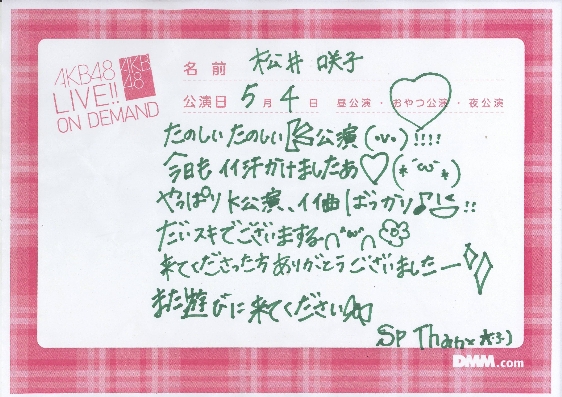 AKB48
LIVE!!
ON DEMAND
AKB
48
名前 松井咲子
公演日 5月4日 昼公演・おやつ公演・夜公演
たのしいたのしいK公演(・v・)!!!!
今日もイイ汗かけましたあ♡(*´ω`*)
やっぱりK公演、イイ曲ばっかり♪!!
だいスキでございまする∩^ω^∩
来てくださった方ありがとうございましたー
また遊びに来てください
Sp Thanx
DMM.com